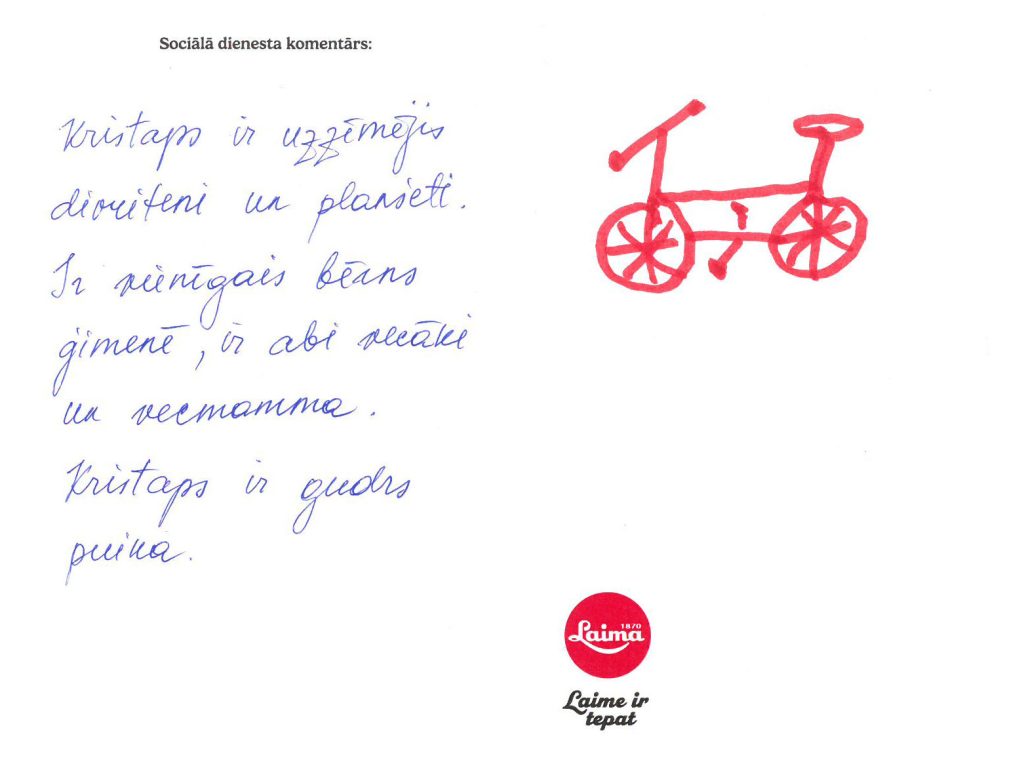 Sociālā dienesta komentārs:
Kristaps ir uzzīmējis
divriteni un planšeti.
Ir vienīgais bērns
ģimenē, ir abi vecāki
un vecmamma.
Kristaps ir gudrs
puika.
1870
Laima
Laime ir
tepat